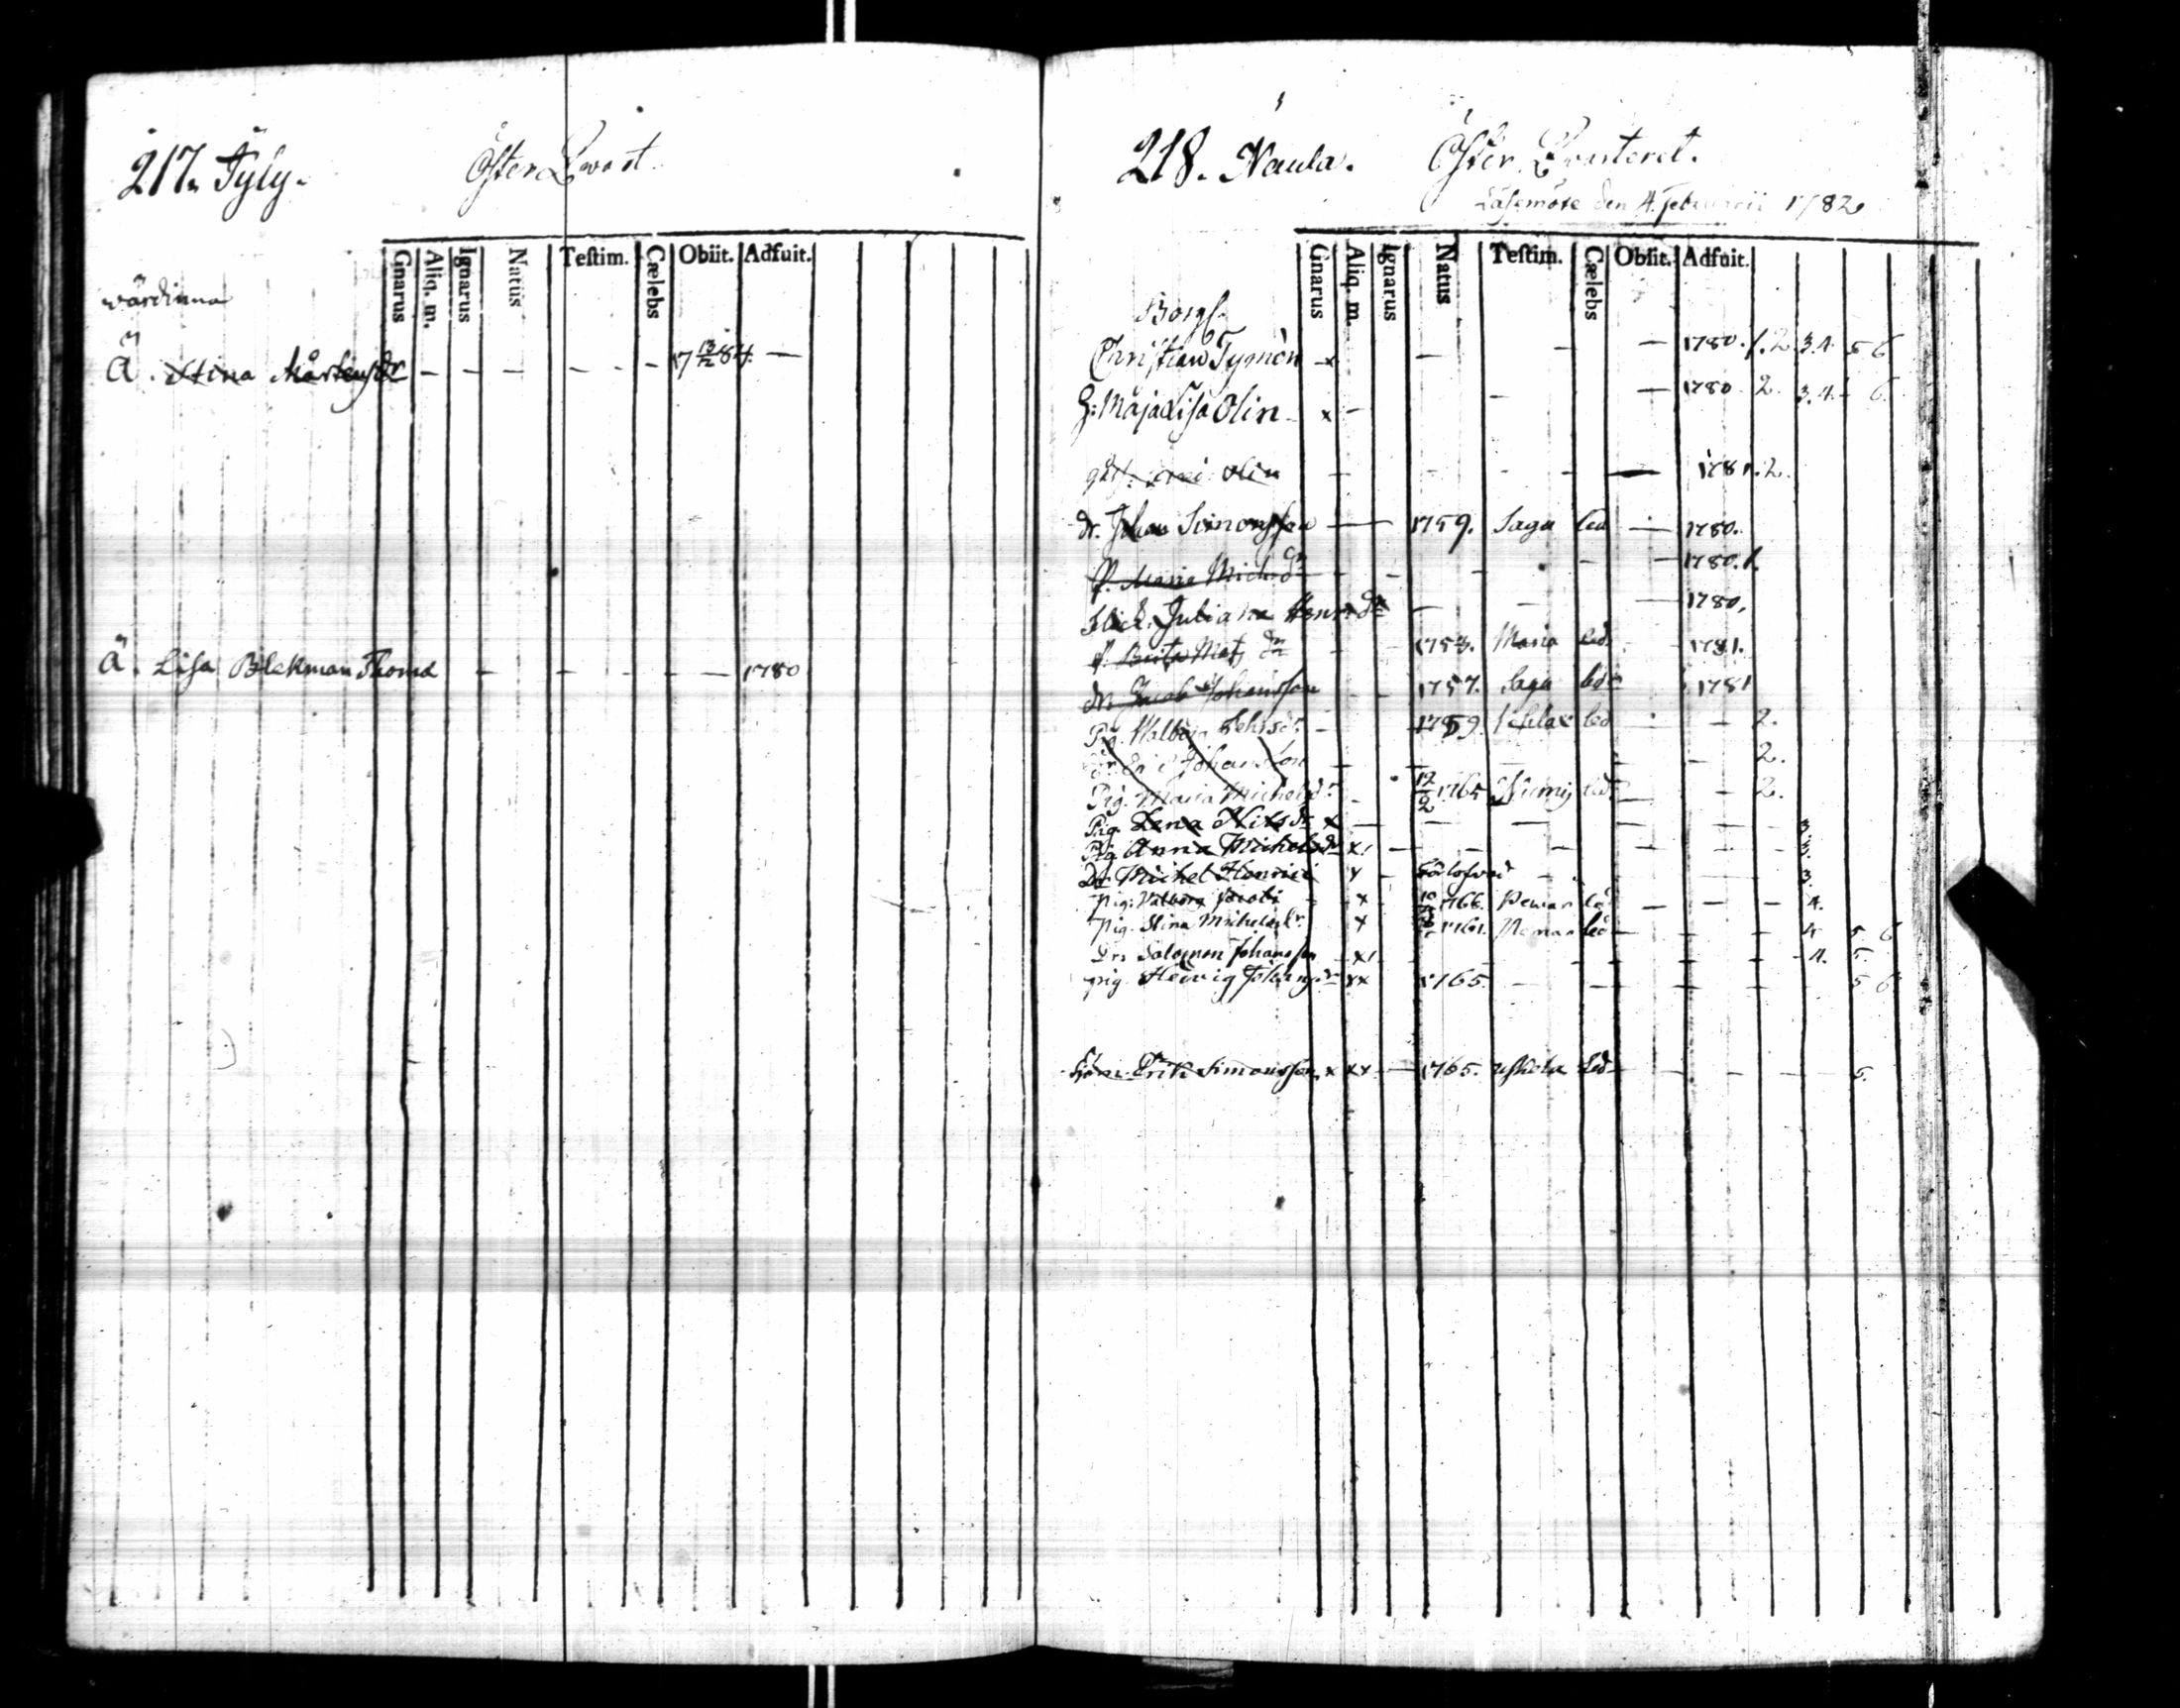 217. Tyly. Öster Qwart.
Gnarus Aliq. m. Ignarus Natus Testim. Cælebs Obiit. Adfuit.
wärdinna
Ä. Stina Mårtensdr - - - - - - 17 13/12 84. -
Ä. Lisa Blekman Thoma - - - - 1780
218. Naula. Öster Qvarteret.
Läsemöte den 4. Februarii 1782
Gnarus Aliq. m. Ignarus Natus Testim. Cælebs Obiit. Adfuit.
Borgs.
Christian Tymon x - - - 1780. 1. 2. 3. 4. 5 6
H: Maja Lisa Olin x - - - 1780 2. 3. 4. - 6.
Olin - - - - - 1781. 2.
dr. Johan Simonsson - 1759. Sagu led - 1780.
p. Maria Mich. dr - - - - - 1780. 1.
Flick. Juliana Henr. dr - - - 1780.
p. Brita Mats dr 1753. Maria led. - 1781.
dr. Jacob Johansson - - 1757. Sagu led - 1781
Pig. Walborg - 1759. led - - 2.
dr. Eric Johansson - - - - - 2.
Pig. Maria Michelsdr - 12/2 1765 Niemis led - - 2.
Pig. Lena Nilsdr x - - - - - - 3.
Pig. Anna Michelsdr x - - - - - 3.
Dr Michel Henric x - - 3.
Pig: Walborg Jacobi - x - 1766. Pemar led - - - 4.
Pig. Stina Michelsdr. x 1761. Pemar led - - - 4 5 6
Dr. Salomon Johansson - x - - - - - - 4. 5.
pig Hedvig Johansdr xx 1765. - - - - - 5 6
Erik Simonsson x xx - 1765. Uskela Led - - - - 5.